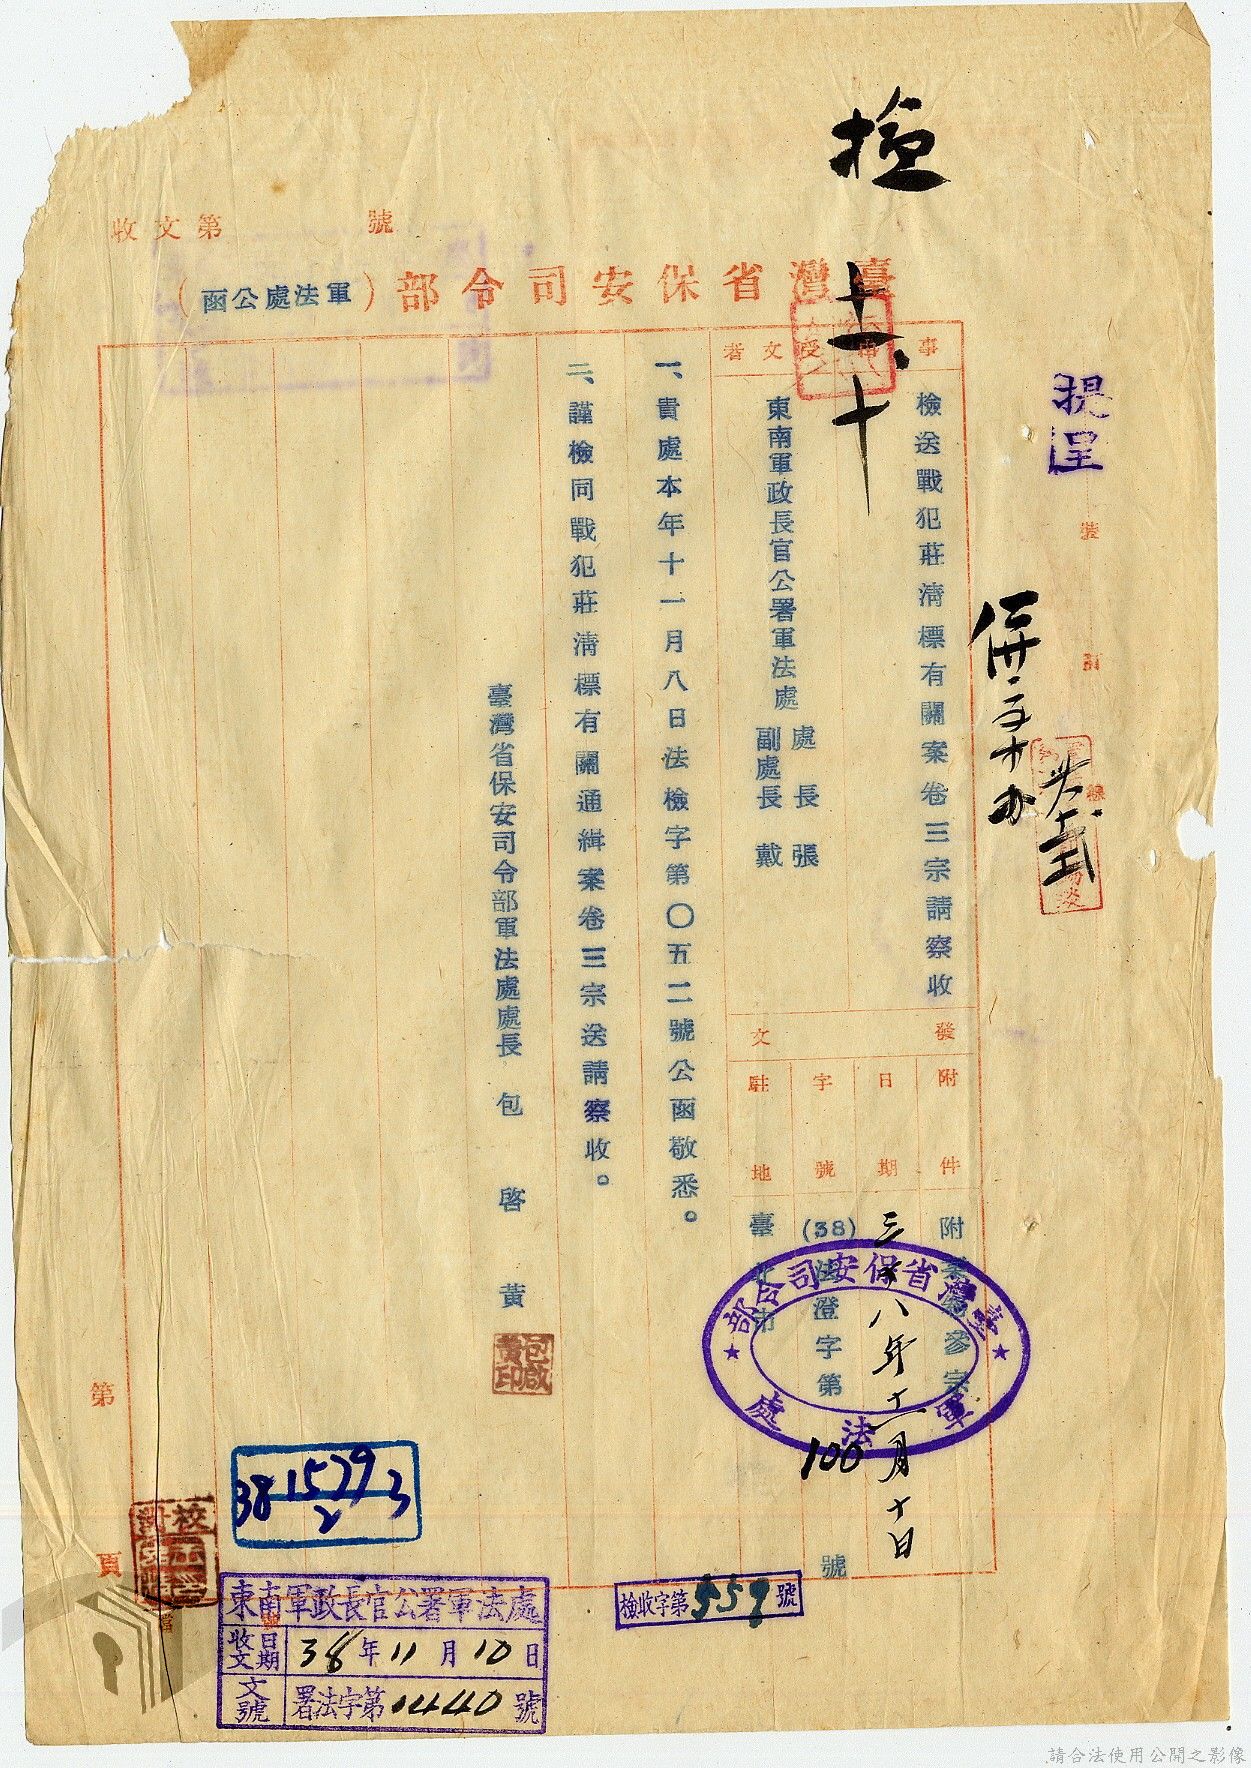 檢
十一、十
收文第　　　號
臺灣省保安司令部（軍法處公函）
提呈
裝
訂
線
事由
檢送戰犯莊清標有關案卷三宗請察收
受文者
東南軍政長官公署軍法處
處長　張
副處長　戴
發文
附件
附案卷參宗
日期
三十八年十一月十日
字號
(38)法澄字第100號
駐地
臺北市
一、貴處本年十一月八日法檢字第〇五二號公函敬悉。
二、謹檢同戰犯莊清標有關通緝案卷三宗送請察收。
臺灣省保安司令部軍法處處長　包啓黃
包啟黃印
臺灣省保安司令部
軍法處
檢收字第559號
38 1579 3
2
第　頁
東南軍政長官公署軍法處
收文日期　38年11月10日
文號　署法字第0440號
請合法使用公開之影像